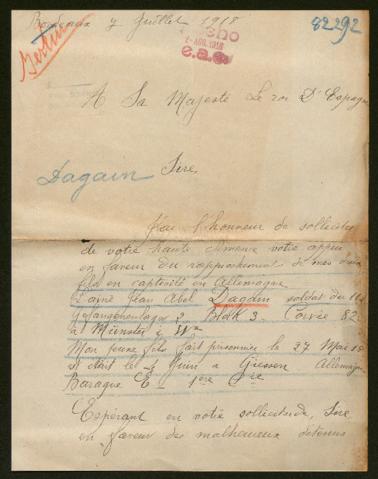 Bordeaux 7 Juillet 1918
82292
Berlin
2 AOU. 1918
e.a.
A Sa Majesté Le roi D'Espagne
Dagain
Sire,
J'ai l'honneur de solliciter
de votre haute clémence votre appui
en faveur du rapprochement de mes deux
fils en captivité en Allemagne
L'ainé Jean Abel Dagain soldat du
Gefangenenlager 2 Block 3 Corvée 82
à Münster i
Mon jeune fils fait prisonnier le 27 Mai 18
était le Juin a Giessen Allemagne
Baraque 1ere
Espérant en votre sollicitude, Sire
en faveur des malheureux détenus